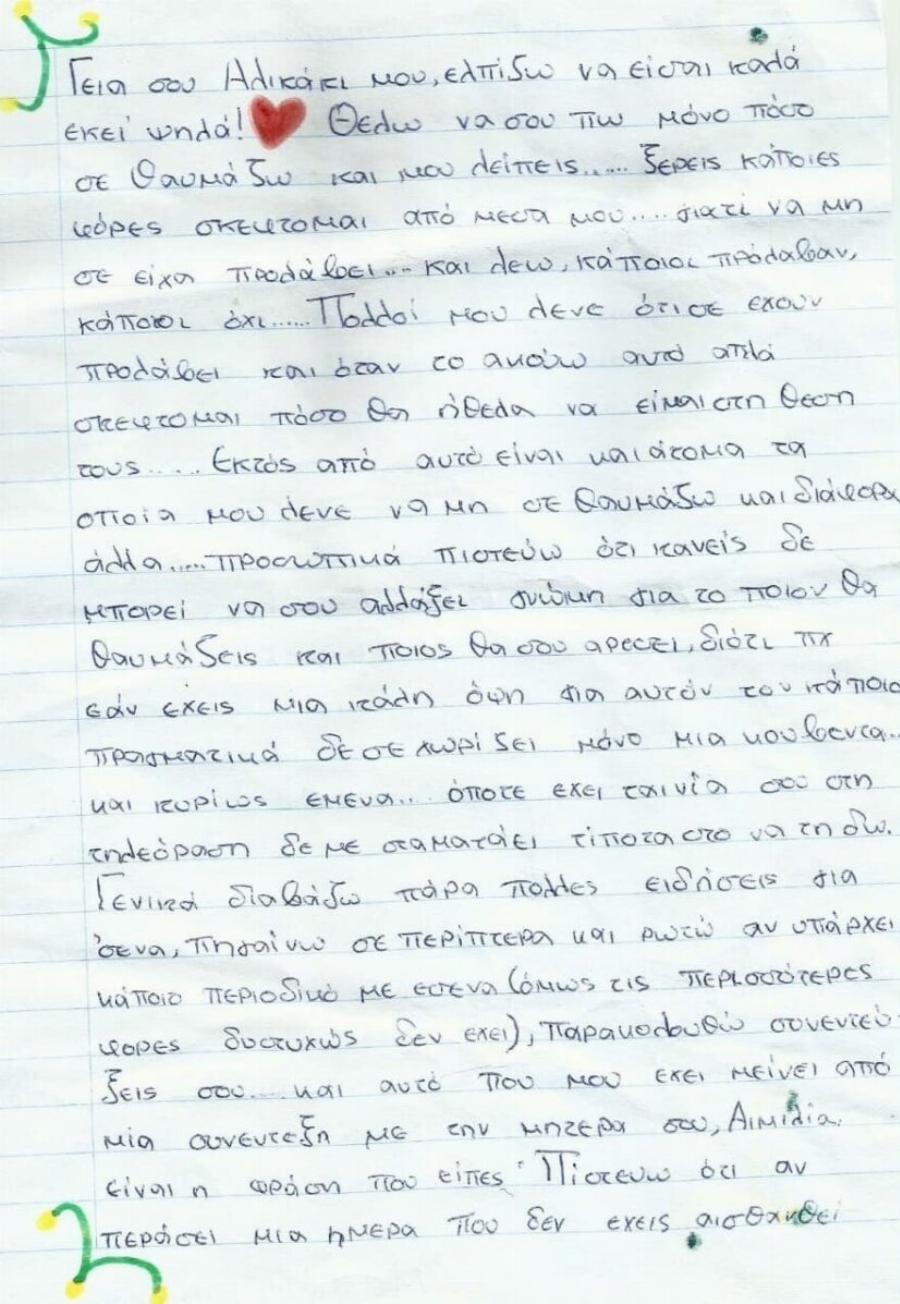 Γεια σου Αλικάκι μου, ελπίζω να είσαι καλά
εκεί ψηλά! Θέλω να σου πω μόνο πόσο
σε θαυμάζω και μου λείπεις...... ξέρεις κάποιες
φόρες σκεφτομαι από μεσα μου..... γιατί να μη
σε είχα προλάβει... και λεω, κάποιοι πρόλαβαν,
κάποιοι όχι...... Πολλοί μου λενε ότι σε εχουν
προλάβει και όταν το ακούω αυτό απλά
σκεφτομαι πόσο θα ήθελα να είμαι στη θεση
τους..... Εκτός από αυτό είναι και άτομα τα
οποία μου λενε να μη σε θαυμάζω και διάφορα
άλλα..... προσωπικά πιστεύω ότι κανείς δε
μπορεί να σου αλλάξει γνώμη για το ποιον θα
θαυμάζεις και ποιος θα σου αρεσει, διότι πχ
εάν εχεις μια καλη όψη για αυτόν τον κάποιο
πραγματικά δε σε χωρίζει μόνο μια κουβεντα...
και κυρίως εμενα... όποτε εχει ταινία σου στη
τηλεόραση δε με σταματάει τίποτα στο να τη δω.
Γενικά διαβάζω πάρα πολλες ειδήσεις για
σενα, πηγαίνω σε περίπτερα και ρωτώ αν υπάρχει
κάποιο περιοδικό με εσενα (όμως τις περισσότερες
φορες δυστυχώς δεν εχει), παρακολουθώ συνεντεύ-
ξεις σου..... και αυτό που μου εχει μείνει από
μία συνεντεξη με την μητερα σου, Αιμιλία,
είναι η φράση που είπες " Πίστευω ότι αν
περάσει μια ημερα που δεν εχεις αισθανθεί